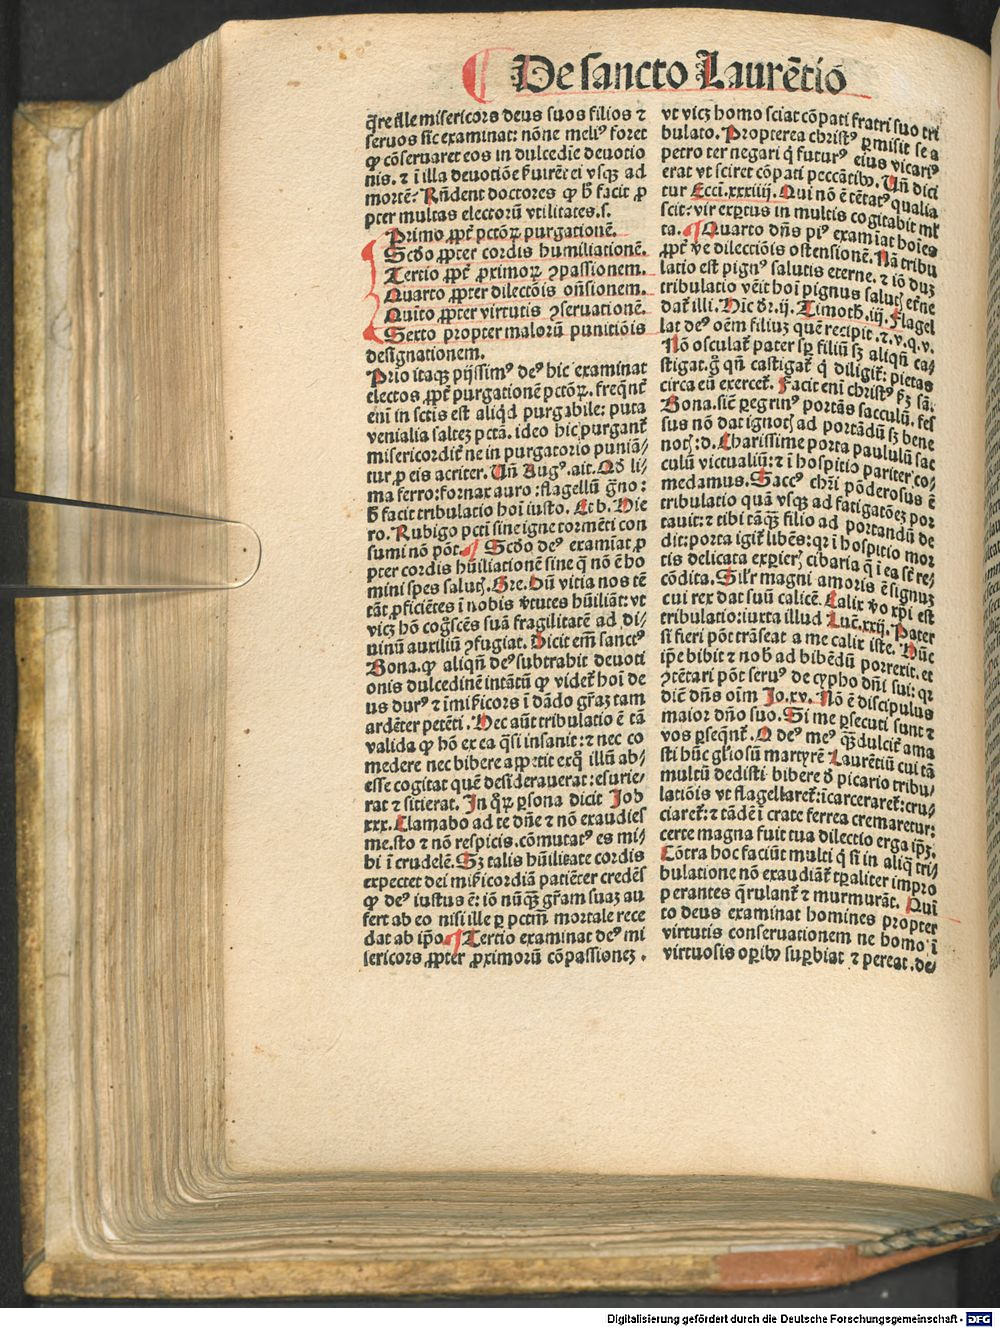 De sancto Laurētio
q̄re ille misericors deus suos filios ⁊
seruos sic examinat: nōne meliꝰ foret
ꝙ cōseruaret eos in dulcedīe deuotio
nis. ⁊ ī illa deuotiōe ẜuirēt ei vsqꝫ ad
mortē? Rn̄dent doctores ꝙ ħ facit ꝓ
pter multas electorū vtilitates. s.
Primo ꝓpt̄ pctōꝝ purgationē.
Scd̄o ꝓpter cordis humiliationē.
Tertio ꝓpt̄ ꝓximoꝝ ꝯpassionem.
Quarto ꝓpter dilectōis on̄sionem.
Quīto ꝓpter virtutis ꝯseruationē.
Sexto propter malorū punitiōis
designationem.
Prio itaqꝫ pijssimꝰ deꝰ hic examinat
electos ꝓpt̄ purgationē pctōꝝ. freqn̄t̄
eni in sctis est aliqd purgabile: puta
venialia saltez pctā. ideo hic purgant̄
misericordit̄ ne in purgatorio puniā/
tur ꝓ eis acriter. Un̄ Augꝰ. ait. Qd̄ li/
ma ferro: fornax auro: flagellū g̃no:
ħ facit tribulatio hoī iusto. Et b. Hie
ro. Rubigo pcti sine igne tormēti con
sumi nō pōt. Scd̄o deꝰ examīat ꝓ
pter cordis hūiliationē sine q̄ nō ē ho
mini spes salutꝭ. Gre. Dū vitia nos tē
tāt ꝓficiētes ī nobis v̓tutes hūiliāt: vt
vicꝫ hō cog̃scēs suā fragilitatē ad di/
uinū auxiliū ꝯfugiat. Dicit em̄ sanctꝰ
Bona. ꝙ aliqn̄ deꝰ subtrahit deuoti
onis dulcedinē intātū ꝙ videt̄ hoī de
us durꝰ ⁊ īmīẜicors ī dādo gr̄az tam
ardēter petēti. Hec aūt tribulatio ē tā
valida ꝙ hō ex ea q̄si insanit: ⁊ nec co
medere nec bibere appetit exq̊ illū ab/
esse cogitat quē desiderauerat: esurie/
rat ⁊ sitierat. In q̊ꝝ ꝑsona dicit Job
xxx. Clamabo ad te dn̄e ⁊ nō exaudies
me. sto ⁊ nō respicis. cōmutatꝰ es mi/
hi ī crudelē. Sꝫ talis hūilitate cordis
expectet dei mīẜicordiā patiēter credēs
ꝙ deꝰ iustus ē: iō nūqꝫ gr̄am suaz au
fert ab eo nisi ille ꝑ pctm̄ mortale rece
dat ab ip̄o. Tertio examinat deꝰ mi
sericors ꝓpter ꝓximorū cōpassionez.
vt vicꝫ homo sciat cōpati fratri suo tri
bulato. Propterea christꝰ ꝑmisit se a
petro ter negari q̇ futurꝰ eius vicariꝰ
erat vt sciret cōpati peccātibꝰ. Un̄ dici
tur Ecci. xxxiiij. Qui nō ē tētatꝰ qualia
scit? vir exꝑtus in multis cogitabit ml̄
ta. Quarto dn̄s piꝰ examīat hoīes
ꝓpt̄ ve dilectiōis ostensionē. Nā tribu
latio est pignꝰ salutis eterne. ⁊ iō duꝫ
tribulatio vēit hoī pignus salutꝭ et̄ne
dat̄ illi. Hic dr̄. ij. Timoth. iij. Flagel
lat deꝰ oēm filiuꝫ quē recipit. ⁊. v. q. v.
Nō osculat̄ pater sꝑ filiū sꝫ aliqn̄ ca/
stigat. g̊ qn̄ castigat̄ q̇ diligit̄: pietas
circa eū exercet̄. Facit eni christꝰ ẜꝫ sā.
Bona. sic̄ ꝑegrinꝰ portās sacculū. fes
sus nō dat ignotꝭ ad portādū sꝫ bene
notꝭ: d. Charissime porta paululū sac
culū victualiū: ⁊ ī hospitio pariter co/
medamus. Saccꝰ chr̄i pōderosus ē
tribulatio quā vsqꝫ ad fatigatōez por
tauit: ⁊ tibi tāqꝫ filio ad portandū de
dit: porta igit̄ libēs: qꝛ ī hospitio mor
tis delicata exꝑierꝭ cibaria q̄ ī ea st̄ re/
cōdita. Sil̄r magni amoris ē signuꝫ
cui rex dat suū calicē. Calix v̓o xp̄i est
tribulatio: iuxta illud Luē. xxij. Pater
si fieri pōt trāseat a me calix iste. Hūc
ip̄e bibit ⁊ nob̓ ad bibēdū porrexit. et
ꝯtētari pōt seruꝰ de cypho dn̄i sui: qꝛ
diē dn̄s oīm Jo. xv. Nō ē discipulus
maior dn̄o suo. Si me ꝑsecuti sunt ⁊
vos ꝑseqn̄t̄. O deꝰ meꝰ qꝫ dulcit̄ ama
sti hūc gl̄iosū martyrē Laurētiū cui tā
multū dedisti bibere d̓ picario tribu/
latiōis vt flagellaret̄: īcarceraret̄: cru/
ciaret̄: ⁊ tādē ī crate ferrea cremaretur:
certe magna fuit tua dilectio erga ip̄ꝫ.
Cōtra hoc faciūt multi q̇ si in aliq̇ tri/
bulatione nō exaudiāt̄ tꝑaliter impro
perantes q̄rulant̄ ⁊ murmurāt. Qui
to deus examinat homines propter
virtutis conseruationem ne homo ī
virtuosis oꝑibꝰ suꝑbiat ⁊ pereat. de/
Digitalisierung gefördert durch die Deutsche Forschungsgemeinschaft - DFG